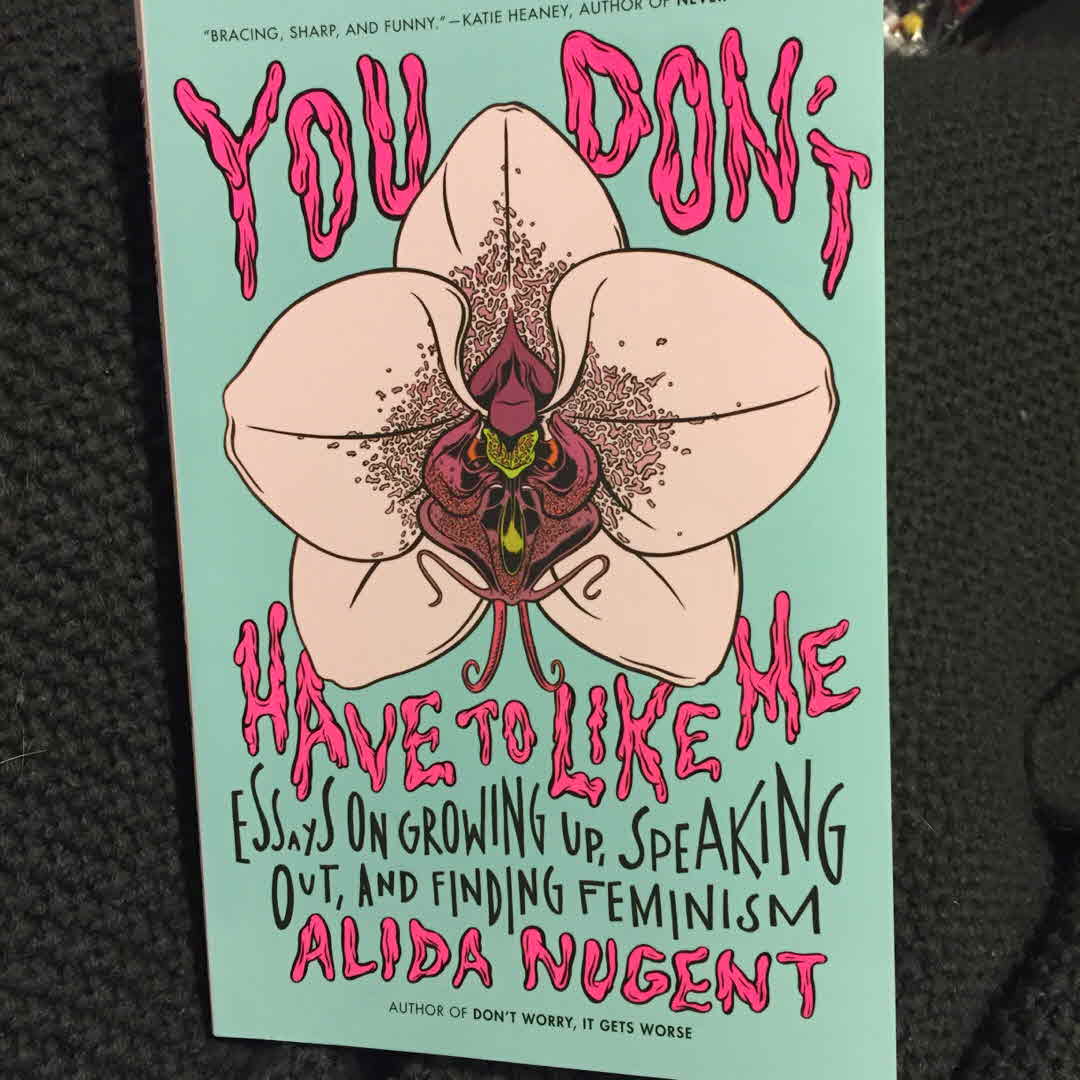 "BRACING, SHARP, AND FUNNY."—KATIE HEANEY, AUTHOR OF NEVER
YOU DON'T
HAVE TO LIKE ME
ESSAYS ON GROWING UP, SPEAKING
OUT, AND FINDING FEMINISM
ALIDA NUGENT
AUTHOR OF DON'T WORRY, IT GETS WORSE